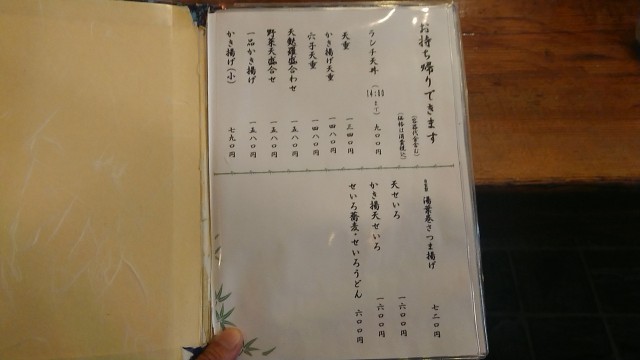 お持ち帰りできます
(容器代金含む)
(価格は消費税込)
ランチ天丼 (14:00まで) 九〇〇円
天重 一三四〇円
かき揚げ天重 一四八〇円
穴子天重 一四八〇円
天麩羅盛合わせ 一五八〇円
野菜天盛合せ 一五八〇円
一品かき揚げ 一五八〇円
かき揚げ(小) 七九〇円
湯葉巻さつま揚げ 七二〇円
天せいろ 一六〇〇円
かき揚天せいろ 一六〇〇円
せいろ蕎麦・せいろうどん 六〇〇円